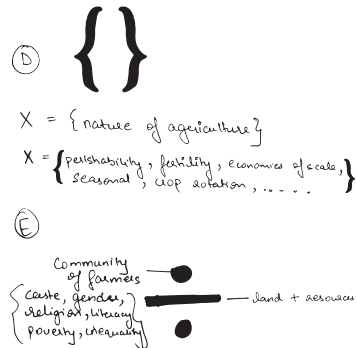 D
{ }
X = {nature of agriculture}
X = {perishability, fertility, economics of scale,
seasonal, crop rotation, .....}
E
Community
of farmers
{caste, gender,
religion, literacy
poverty, inequality}
land + resources